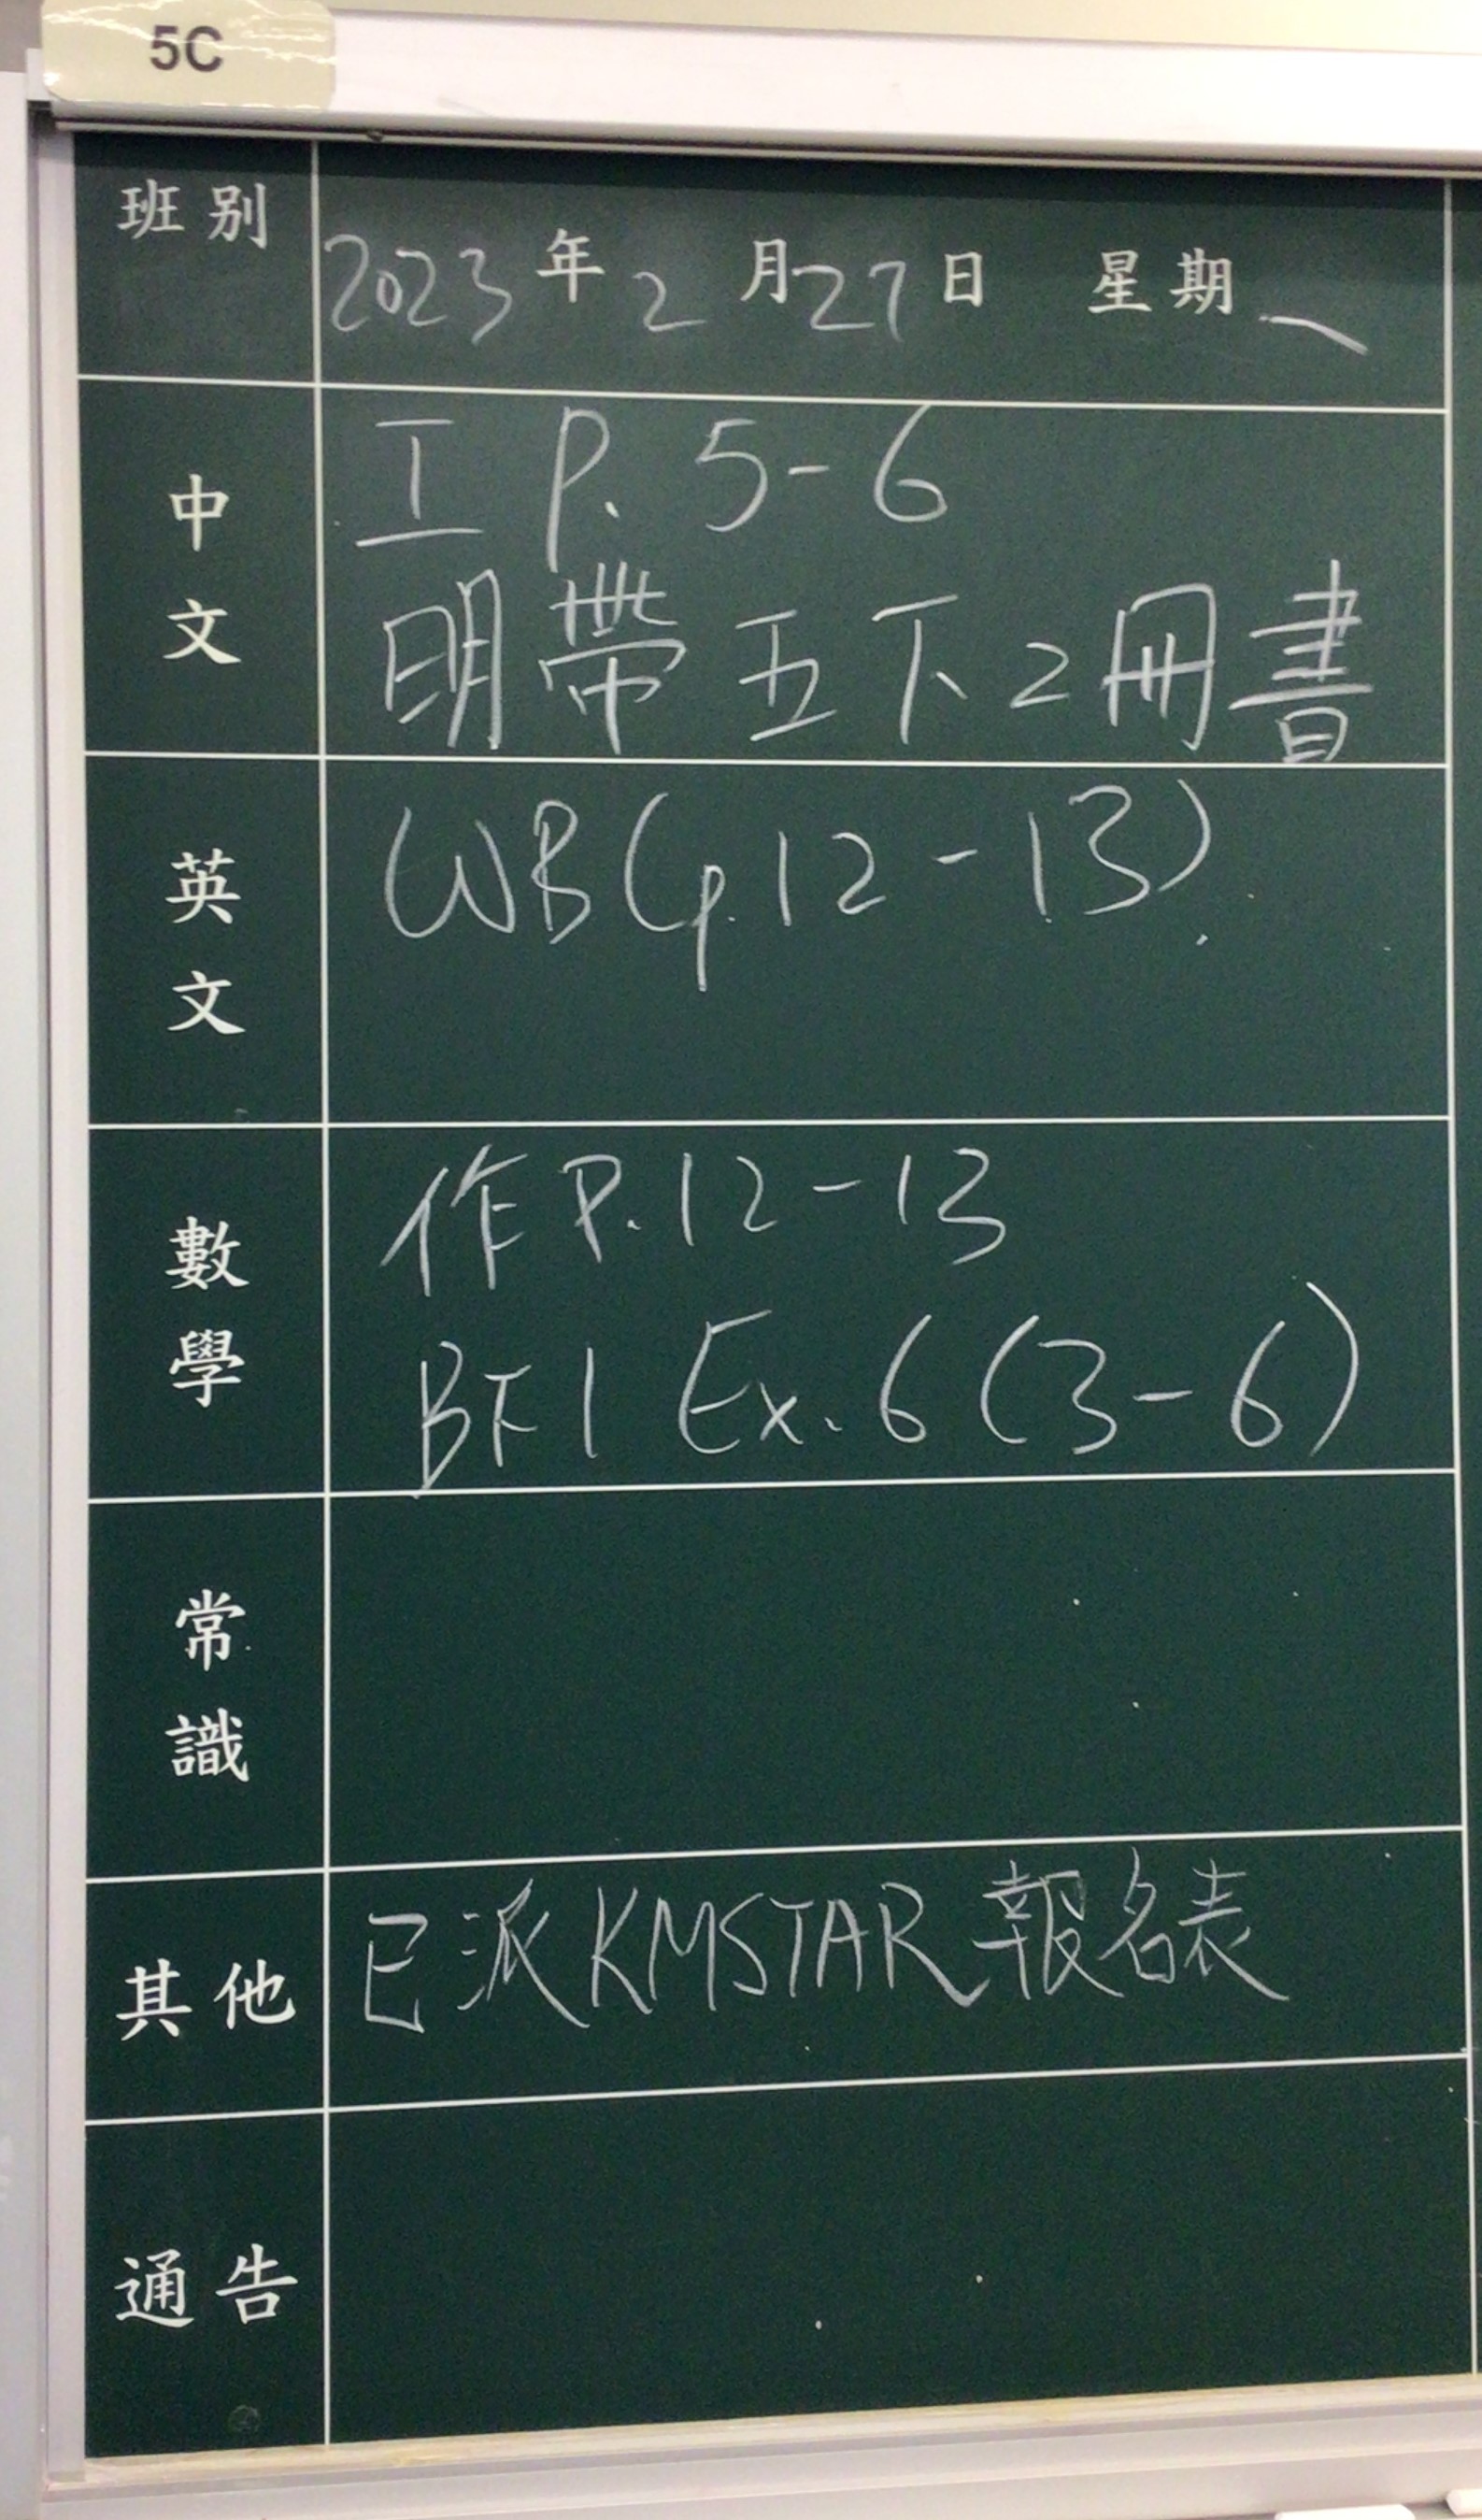 5C
班別
2023年2月27日 星期一
中文
工 P. 5-6
明帶五下2冊書
英文
WB (p.12-13)
數學
作 P.12-13
B下1 Ex. 6 (3-6)
常識
其他
已派KMSTAR報名表
通告